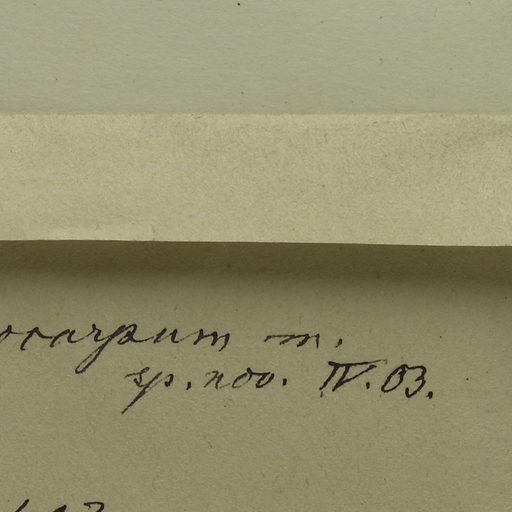 ocarpum m.
sp. nov. IV. 03.